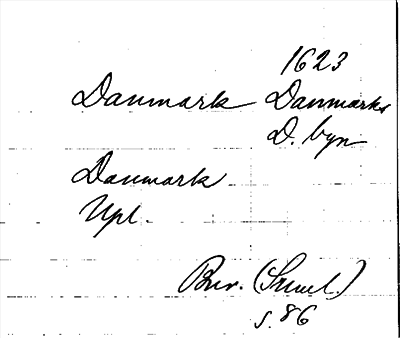 1623
Danmark Danmarks
D. byn
Danmark
Upl.
s. 86